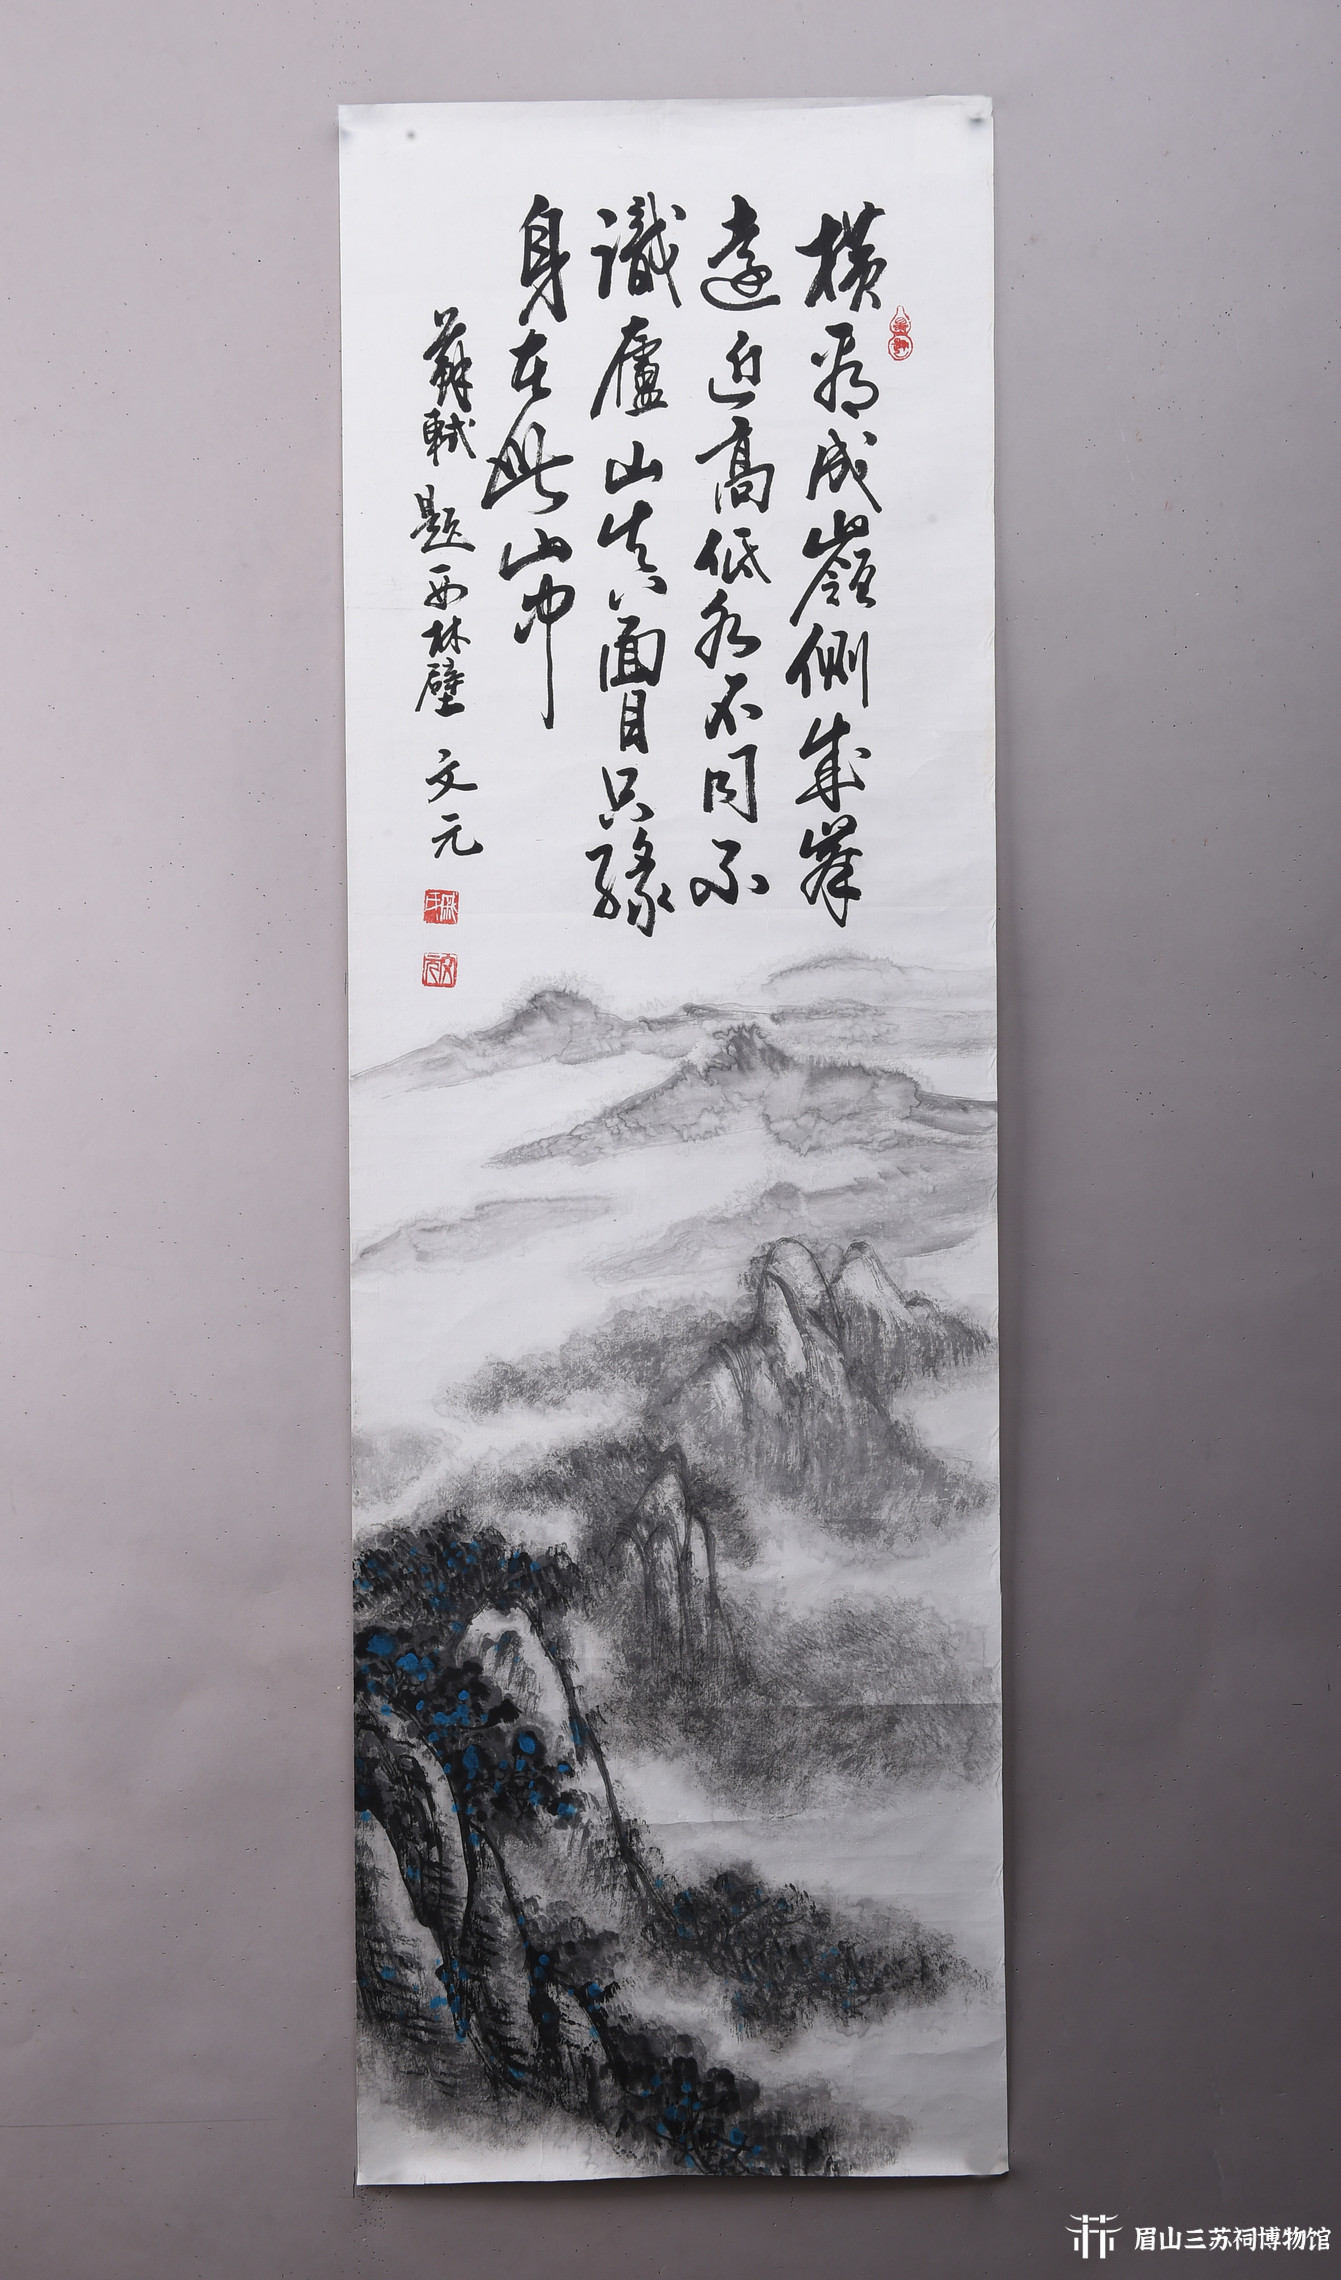 橫看成嶺側成峯
遠近高低各不同不
識廬山真面目只緣
身在此山中
蘇軾 題西林壁 文元
眉山三苏祠博物馆